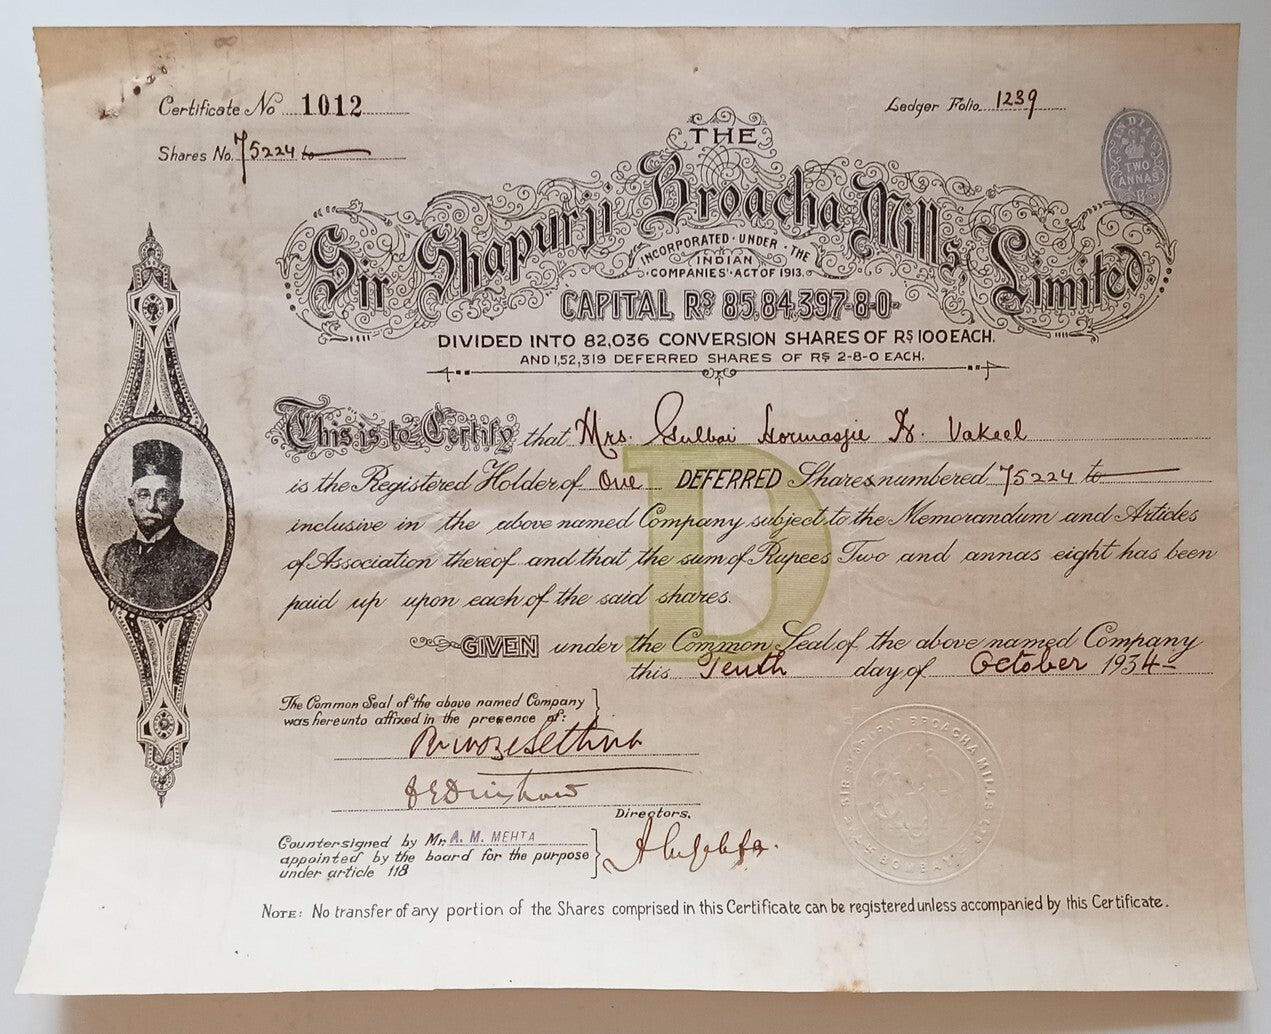 Certificate No 1012
Ledger Folio 1239
Shares No. 75224 to
INDIA
TWO
ANNAS
THE
Sir Shapurji Broacha Mills, Limited
INCORPORATED · UNDER · THE
INDIAN
COMPANIES' ACT OF 1913.
CAPITAL Rs 85,84,397-8-0
DIVIDED INTO 82,036 CONVERSION SHARES OF Rs 100 EACH.
AND 1,52,319 DEFERRED SHARES OF Rs 2-8-0 EACH.
This is to Certify that Mrs. Gulbai Hormasjie N. Vakeel
is the Registered Holder of One DEFERRED Shares numbered 75224 to
inclusive in the above named Company subject to the Memorandum and Articles
of Association thereof and that the sum of Rupees Two and annas eight has been
paid up upon each of the said shares.
D
GIVEN under the Common Seal of the above named Company
this Tenth day of October 1934
The Common Seal of the above named Company
was hereunto affixed in the presence of:
Directors,
Countersigned by Mr. A. M. MEHTA
appointed by the board for the purpose
under article 118
SIR SHAPURJI BROACHA MILLS LTD
BOMBAY
NOTE: No transfer of any portion of the Shares comprised in this Certificate can be registered unless accompanied by this Certificate.